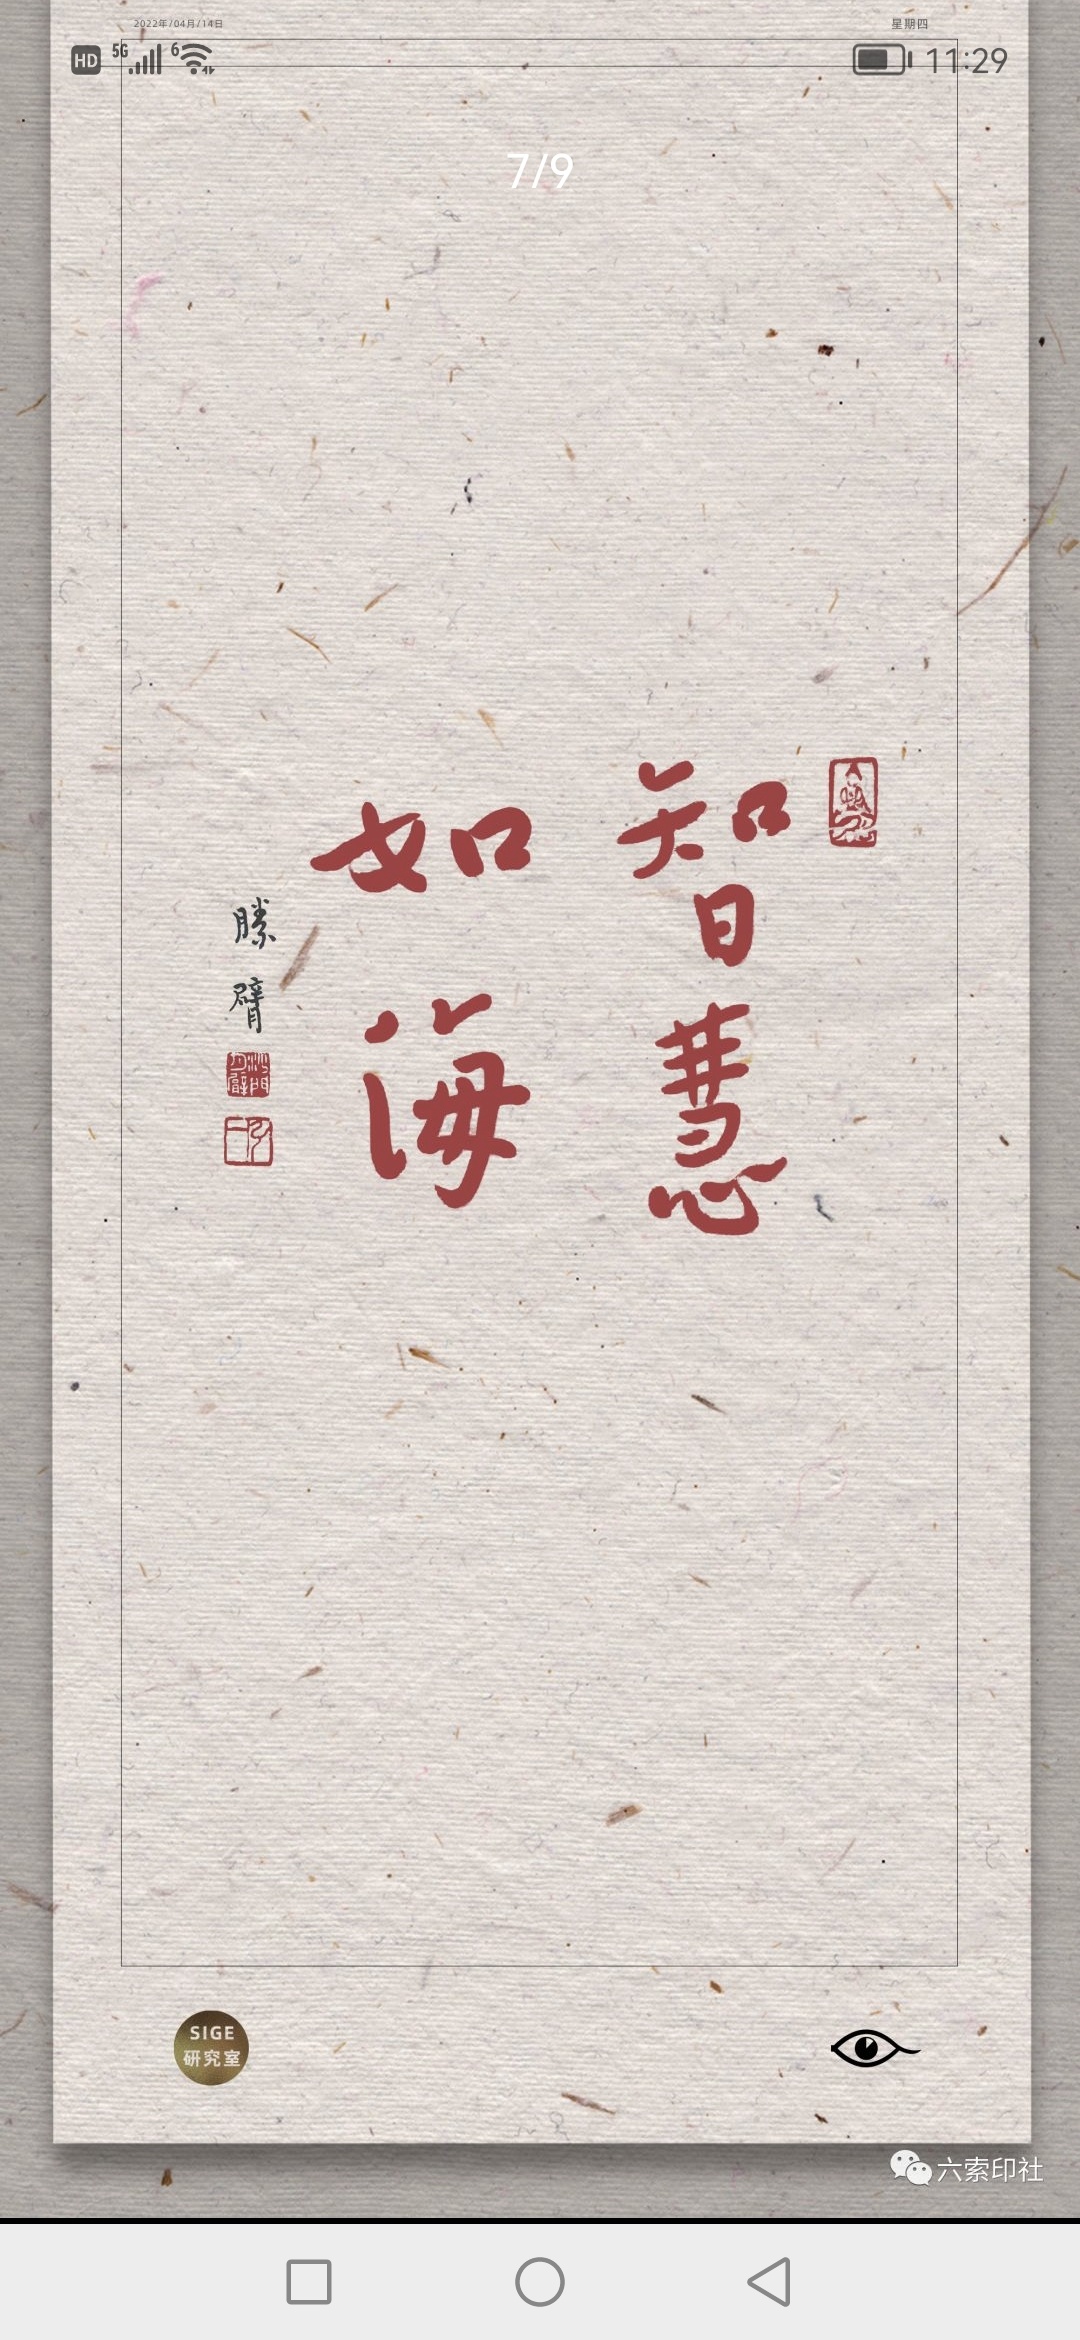 2022年/04月/14日
星期四
HD 5G 6 11:29
7/9
智慧
如海
勝臂
SIGE
研究室
六索印社